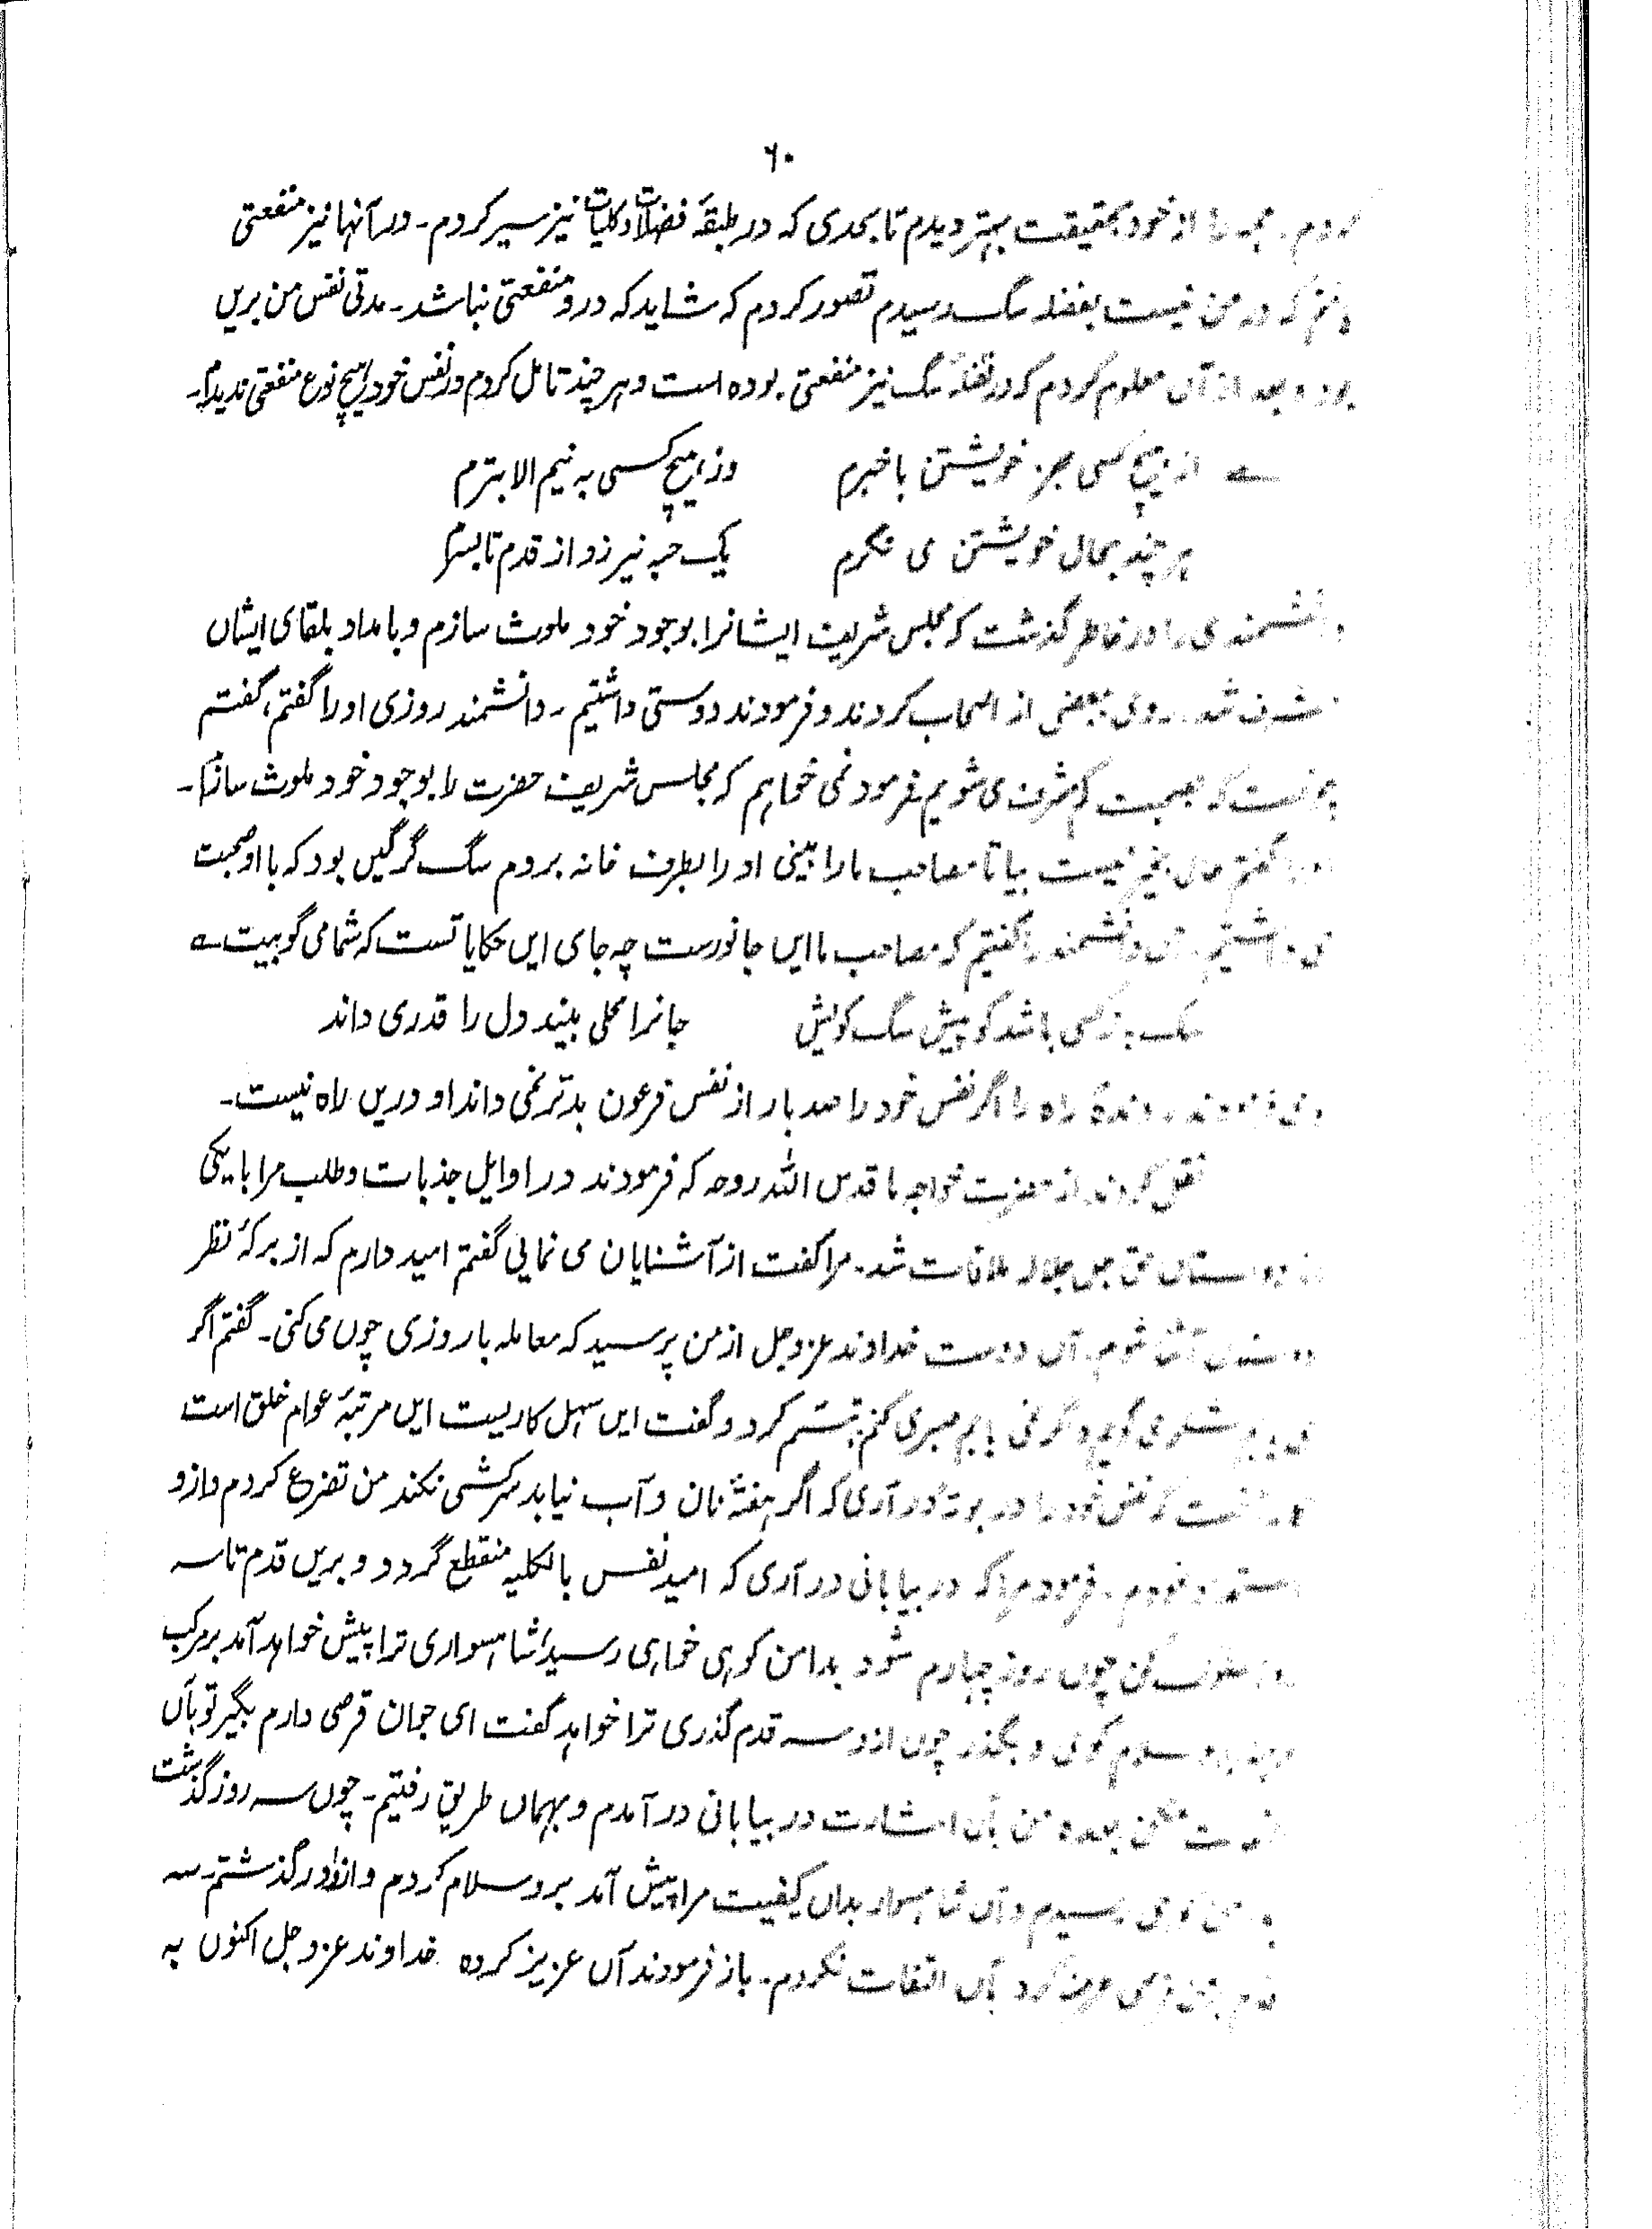 ۶۰
کردم. همه را از خود بحقیقت بهتر دیدم تا بحدی که در طبقهٔ فضلات و کلیات نیز سیر کردم۔ در آنها نیز منفعتی
که در من نیست بفضلهٔ سگ رسیدم تصور کردم که شاید که درو منفعتی نباشد۔ مدتی نفس من بریں
بود و بعد ازآں معلوم کردم که در فضلهٔ سگ نیز منفعتی بوده است و هر چند تامل کردم در نفس خود هیچ نوع منفعتی ندیدم۔
از هیچ کسی بجز خویشتن باخبرم وز هیچ کسی به نیم الا بترم
هر چند بحال خویشتن می نگرم یک حبه نیرزد از قدم تا بسرم
دانشمندی را در خاطر گذشت که مجلس شریف ایشانرا بوجود خود ملوث سازم و بامداد بلقای ایشاں
مشرف شد. روی ببعضی از اصحاب کردند و فرمودند دوستی داشتیم۔ دانشمند روزی او را گفتم، گفتم
که بصحبت که مشرف می شویم فرمود نمی خواهم که مجلس شریف حضرت را بوجود خود ملوث سازم۔
گفتم حال نیست بیا تا مصاحب ما را بینی او را بطرف خانه بردم سگ گرگیں بود که با او صحبت
می داشتیم. آں دانشمند را گفتیم که مصاحب ما ایں جانورست چه جای ایں حکایاتست که شما می گوییت
سگ به ز کسی باشد کو پیش سگ کویش جانرا محلی بیند دل را قدری داند
و می فرمودند روندهٔ راه را اگر نفس خود را صد بار از نفس فرعون بدتر نمی داند او دریں راه نیست۔
نقل کردند از حضرت خواجه ما قدس الله روحه که فرمودند در اوایل جذبات و طلب مرا با یکی
از دوستاں حق جل جلاله ملاقات شد. مرا گفت از آشنایان می نمایی گفتم امید دارم که از برکهٔ نظر
دوستاں آشنا شوم. آں دوست خداوند عزوجل از من پرسید که معامله با روزی چوں می کنی۔ گفتم اگر
می یابم شکر می گویم و گر نمی یابم صبری کنم تبسم کرد و گفت ایں سهل کاریست ایں مرتبهٔ عوام خلق است
کار آنست که نفس خود را در بوتهٔ در آری که اگر هفتهٔ نان و آب نیابد سرکشی نکند من تضرع کردم و ازو
استمداد نمودم. فرمود مرا که در بیابانی در آری که امید نفس بالکلیه منقطع گردد و بریں قدم تا سه
روز سلوک کن چوں روز چهارم شود بدامن کوهی خواهی رسید شاهسواری ترا پیش خواهد آمد بر مرکب
سلام گوئی و بگذر چوں ازو سه قدم گذری ترا خواهد گفت ای جوان قرصی دارم بگیر تو بآں
التفات مکن بعده من بآں اشارت در بیابانی در آمدم و بهماں طریق رفتیم۔ چوں سه روز گذشت
بدامن کوهی رسیدم و آں شاهسوار بداں کیفیت مرا پیش آمد برو سلام کردم و ازو در گذشتم۔ سه
قدم عرض کرد بآں التفات نکردم. باز فرمودند آں عزیز کرده خداوند عزوجل اکنوں به